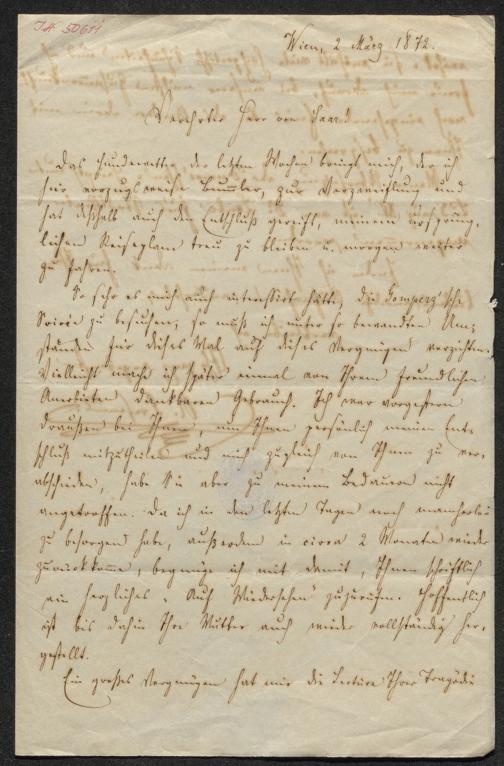 I.N. 50611
Wien, 2 März 1872.
Verehrter Herr von Saar!
Das Hundewetter der letzten Wochen bringt mich, der ich
hier vorzugsweise Bummler, zur Verzweiflung und
hat deßhalb auch den Entschluß gereift, meinem ursprüng-
lichen Reiseplan treu zu bleiben u. morgen weiter
zu fahren.
So sehr es mich auch interessirt hätte, die Gomperz'sche
Soirée zu besuchen, so muß ich unter so bewandten Um-
ständen für dieses Mal auf dieses Vergnügen verzichten.
Vielleicht mache ich später einmal von Ihrem freundlichen
Anerbieten dankbaren Gebrauch. Ich war vorgestern
draußen bei Ihnen, um Ihnen persönlich meinen Ent-
schluß mitzutheilen und mich zugleich von Ihnen zu ver-
abschieden, habe Sie aber zu meinem Bedauern nicht
angetroffen. Da ich in den letzten Tagen noch mancherlei
zu besorgen habe, außerdem in circa 2 Monaten wieder
zurückkomme, begnüge ich mich damit, Ihnen schriftlich
ein herzliches „Auf Wiedersehen" zuzurufen. Hoffentlich
ist bis dahin Ihre Mutter auch wieder vollständig her-
gestellt.
Ein großes Vergnügen hat mir die Lectüre Ihrer Tragödie